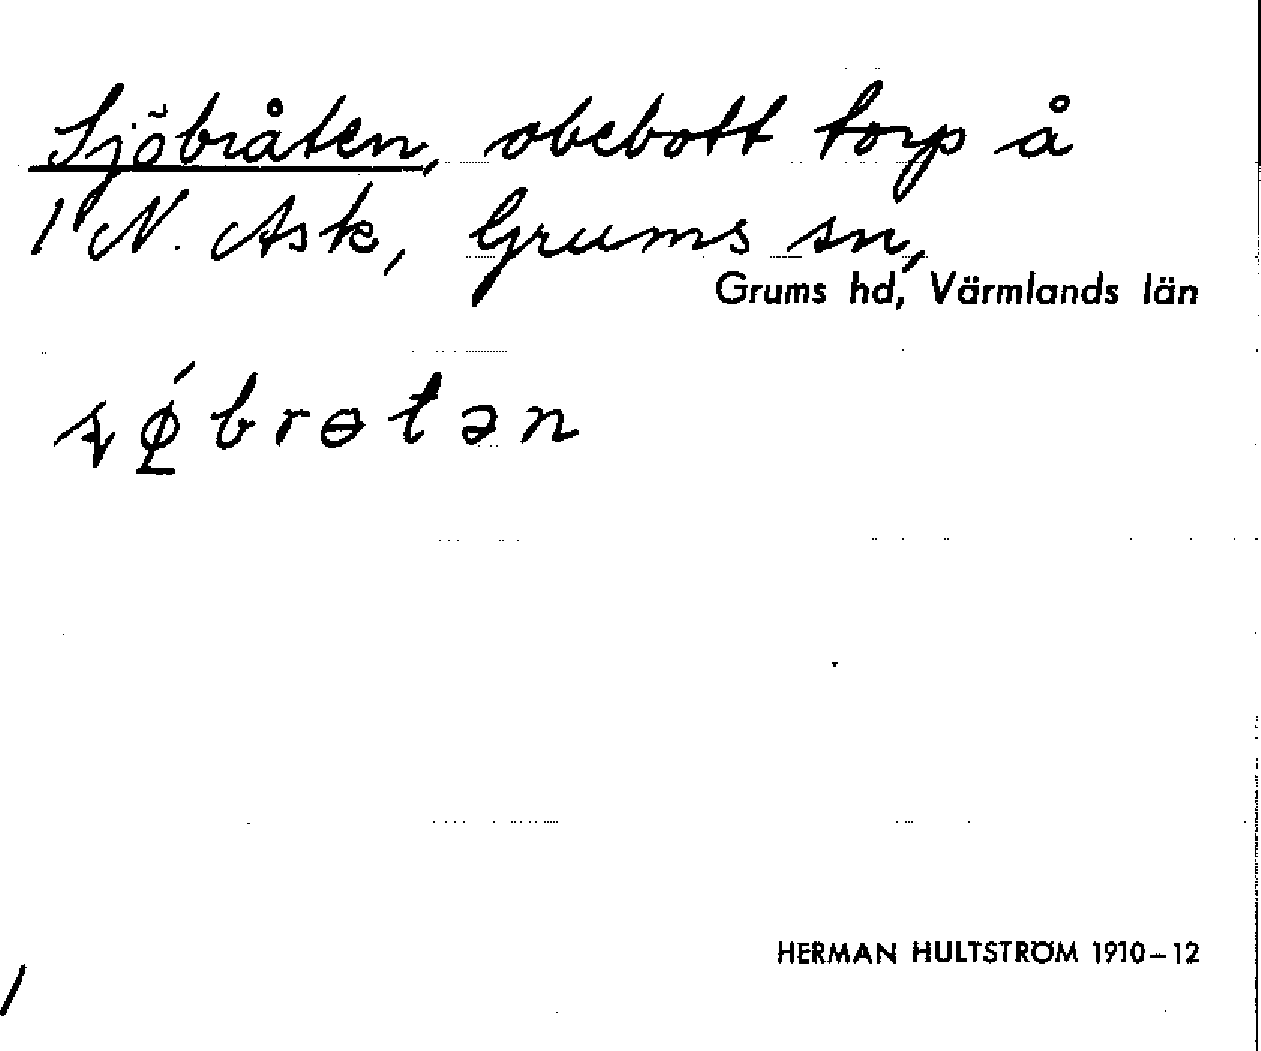 Sjöbråten, obebott torp å
1 N. Ask, Grums sn,
Grums hd, Värmlands län
HERMAN HULTSTRÖM 1910–12